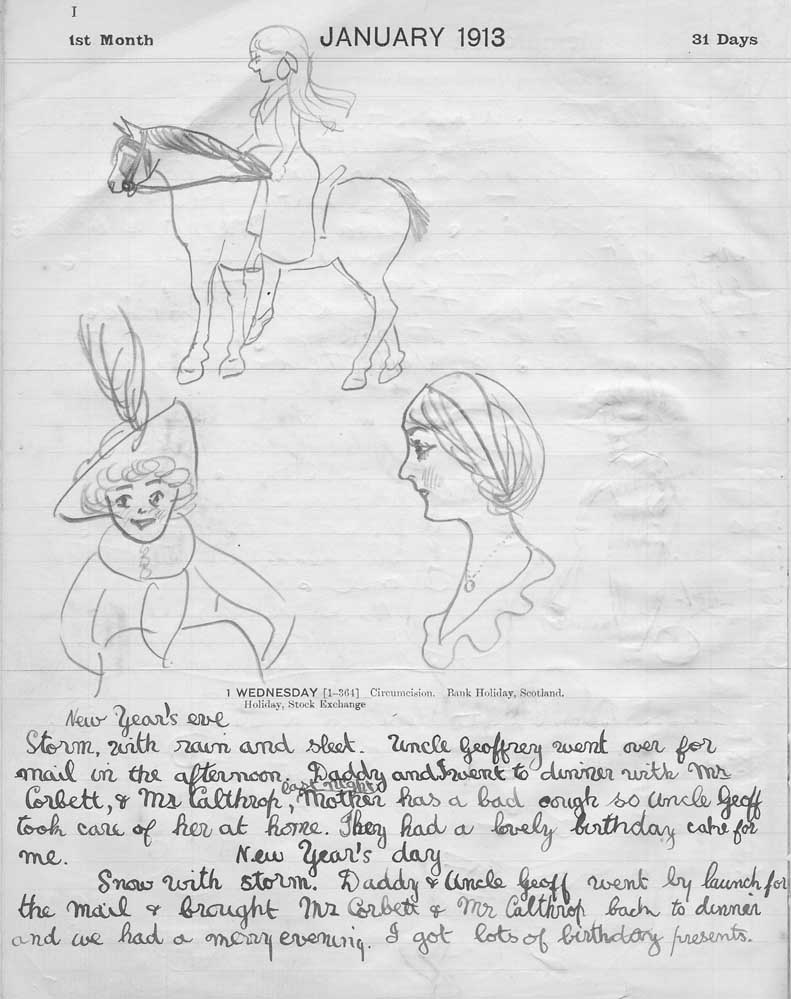 I
1st Month JANUARY 1913 31 Days
1 WEDNESDAY [1-364] Circumcision. Bank Holiday, Scotland.
Holiday, Stock Exchange
New Year's eve
Storm, with rain and sleet. Uncle Geoffrey went over for
mail in the afternoon. Daddy and I went to dinner with Mr
last night
Corbett, & Mr Calthrop, Mother has a bad cough so Uncle Geoff
took care of her at home. They had a lovely birthday cake for
me. New Year's day
Snow with storm. Daddy & Uncle Geoff went by launch for
the mail & brought Mr Corbett & Mr Calthrop back to dinner
and we had a merry evening. I got lots of birthday presents.